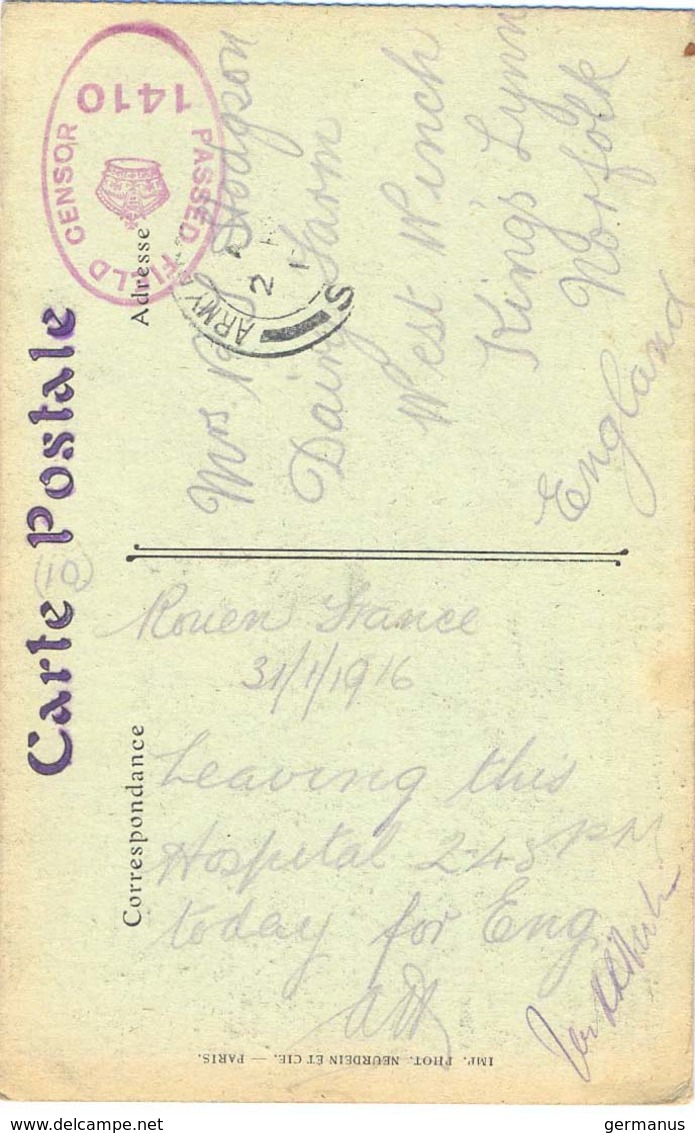 Carte Postale
(10)
Correspondance
Adresse
PASSED FIELD CENSOR
1410
ARMY
2
S
Rouen France
31/1/1916
Leaving this
Hospital 2-45 PM
today for Eng
Mrs Hodgson
Dairy Farm
West Winch
Kings Lynn
Norfolk
England
IMP. PHOT. NEURDEIN ET CIE. — PARIS.
germanus